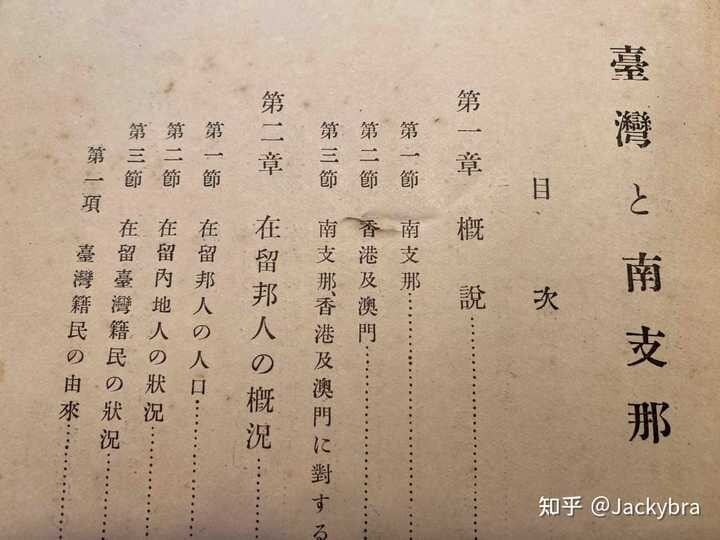 臺灣と南支那
目次
第一章 概說
第一節 南支那
第二節 香港及澳門
第三節 南支那、香港及澳門に對する
第二章 在留邦人の概況
第一節 在留邦人の人口
第二節 在留內地人の狀況
第三節 在留臺灣籍民の狀況
第一項 臺灣籍民の由來
知乎 @Jackybra